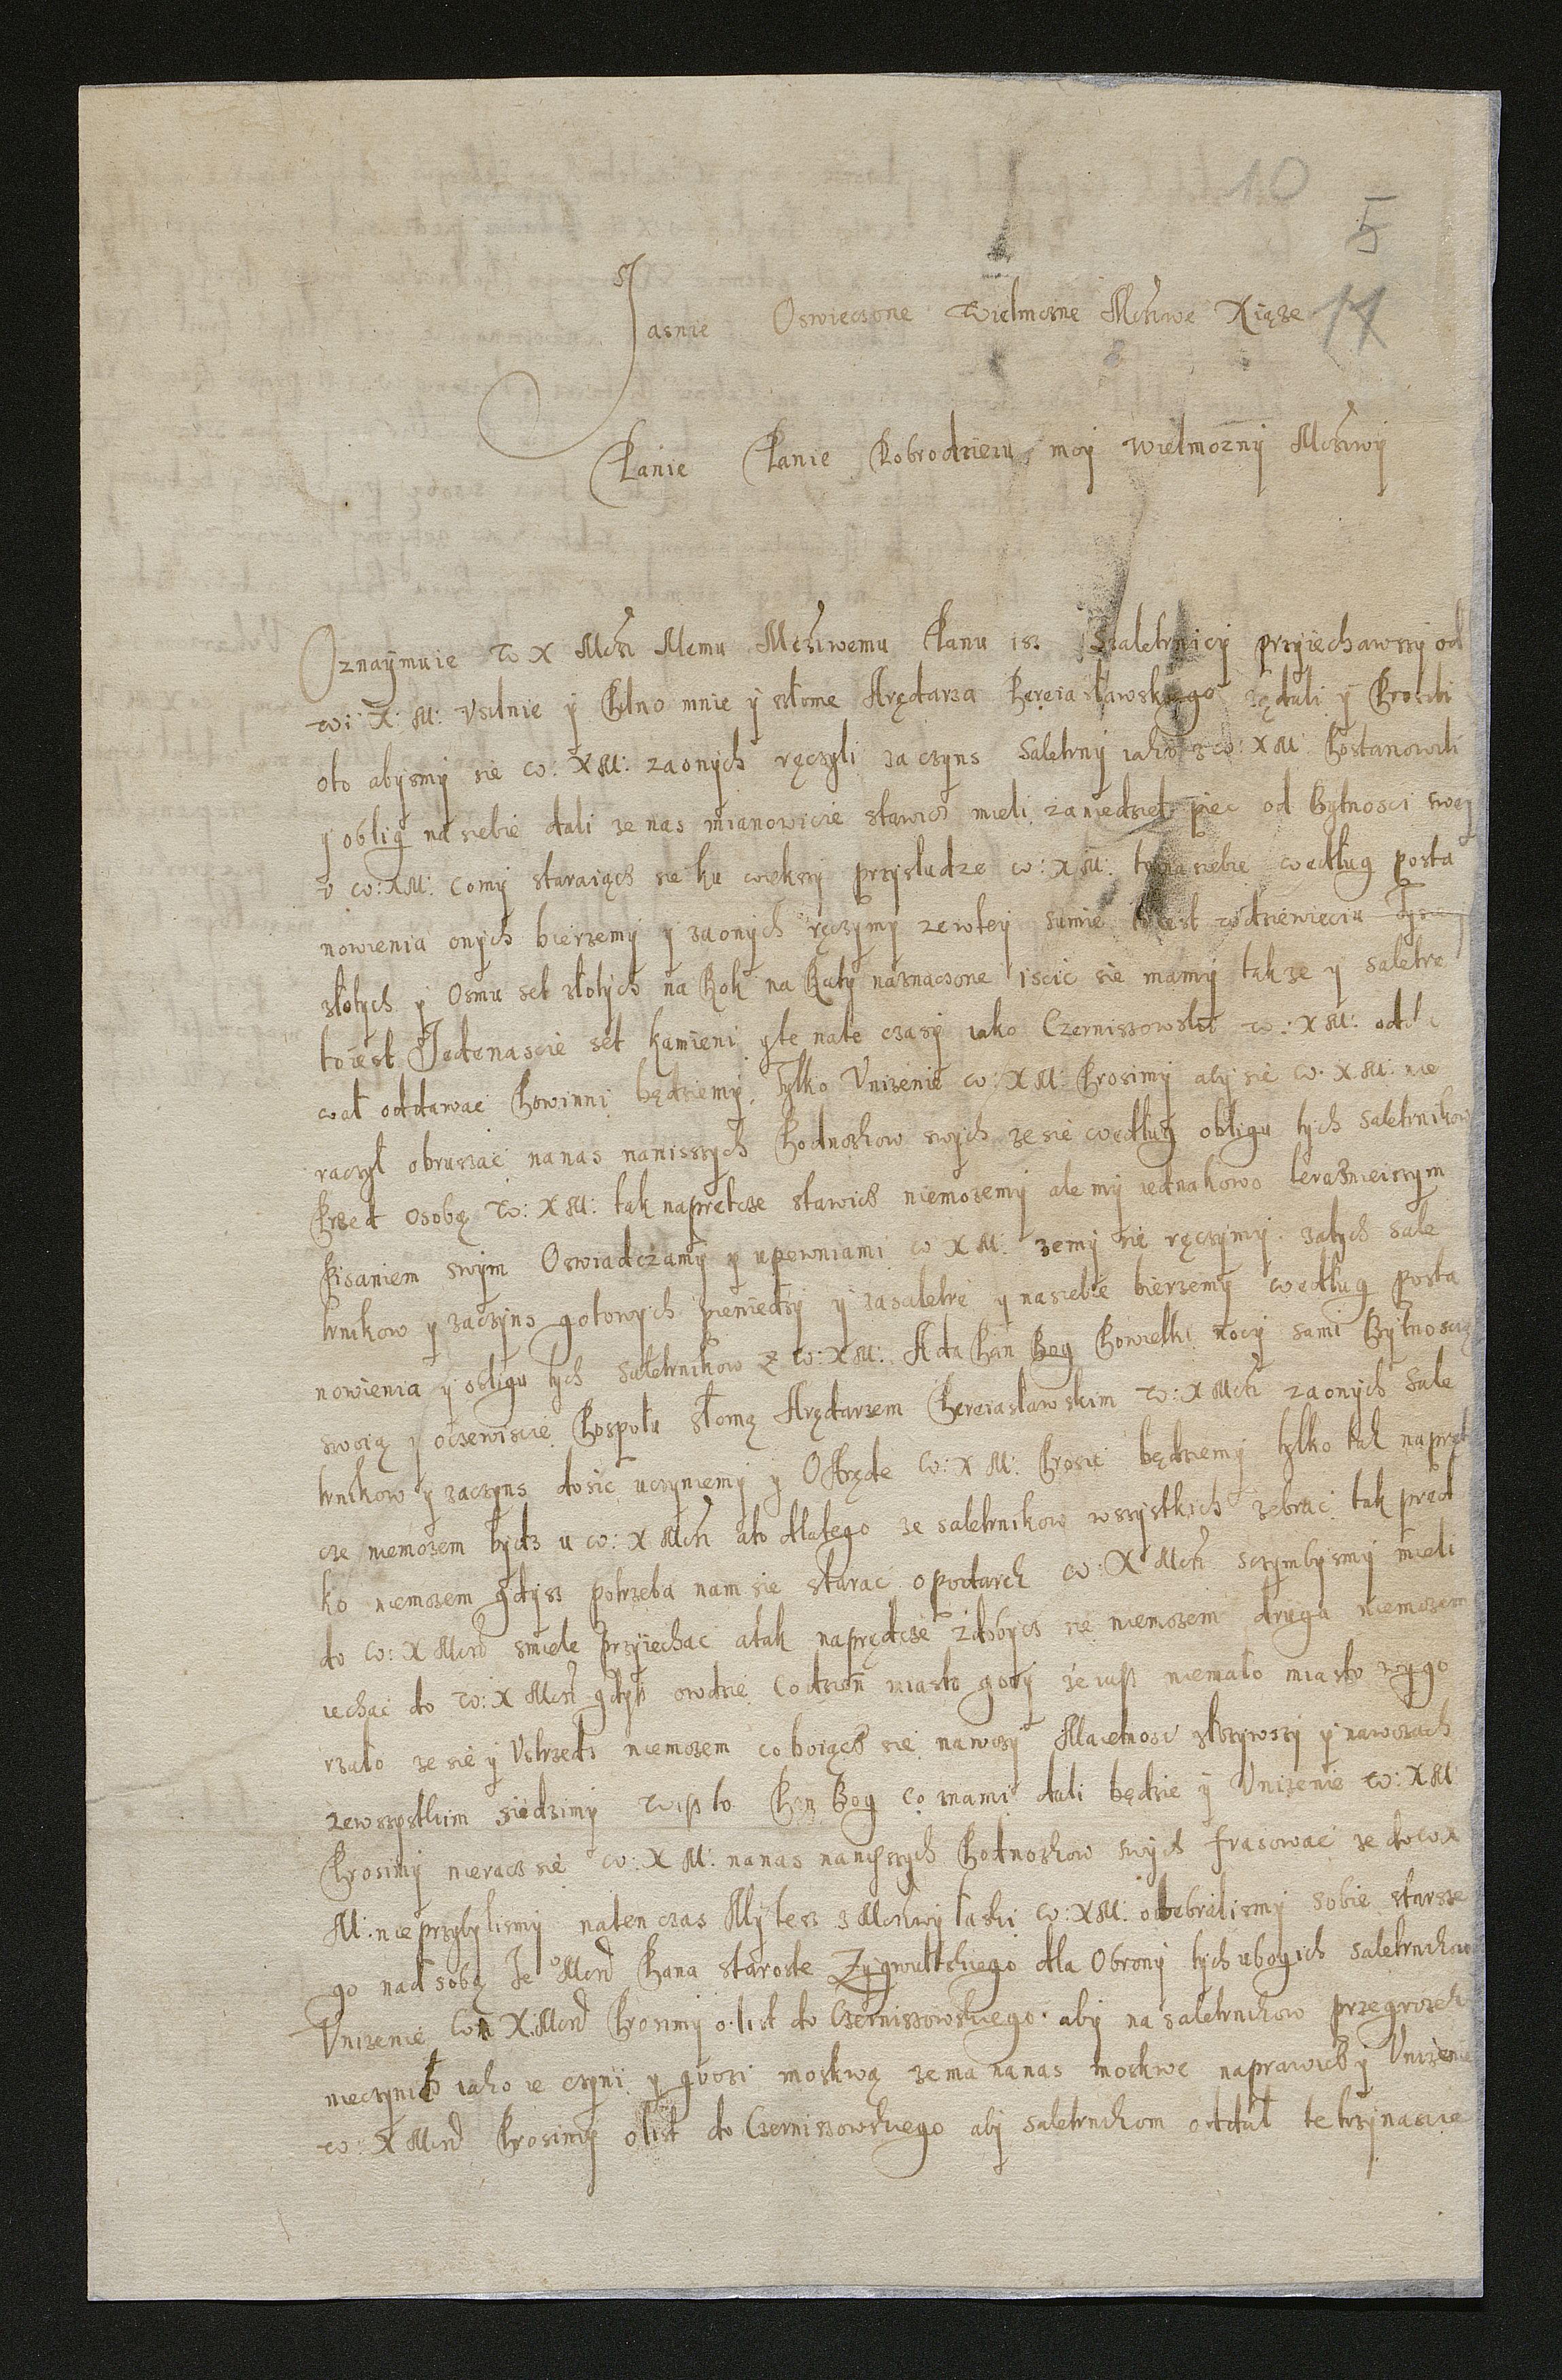 10
5
14
Jasnie Oswieczone Wielmozne Mczwe Xiąze
Panie Panie Dobrodzieiu moy Wielmozny Mczwy
Oznaymuie W X Mczi Memu Mczwemu Panu isz Szaletrnicy przyiechawszy od
W: X: M: Vsilnie y Pilno mnie y słome Arędarza Pereiasławskiego ządali y Prosili
oto abysmy sie W: XM: zaonych ręczyli za czyns Saletrny iako z W: XM: Postanowili
y oblig na siebie dali ze nas mianowicie stawicz mieli zaniedziel pięc od Bytnosci swey
v W: XM: Comy staraiącz sie ku wiekszy przysludze W: XM: to na siebie według posta
nowienia onych bierzemy y zaonych ręczymy zewtey sumie to iest w dziewieciu Tysięcy
złotych y Osmu set złotych na Rok na Raty naznaczone iscic sie mamy takze y saletre
toiest Jedenascie set kamieni yte nate czasy iako Czernissowski W: XM: odda
wał oddawac Powinni będziemy, Tylko Vnizenie W: XM: Prosimy aby sie W. XM: nie
raczył obruszac nanas naniszszych Podnoszkow swych ze sie według obligu tych Saletrnikow
Przed osobą W: XM: tak naprętcze stawicz niemozemy ale my iednakowo terazneiszym
Pisaniem swym Oswiadczamy y upewniami W XM: zemy sie ręczymy zatych sale
trnikow y zaczyns gotowych pieniedzy y zasaletre y nasiebie bierzemy według posta
nowienia y obligu tych Saletrnikow z W: XM: A da Pan Bog Powielki nocy sami Bytnoscią
swoią y oczewiscie Pospołu słomą Arędarzem Pereiasławskim W: X Mczi zaonych Sale
trnikow y zaczyns dosic uczyniemy y O Aręde W: X M: Prosic będziemy tylko tak napręt
cze niemozem bydz u W: X Mczi ato dlatego ze saletrnikow wszystkich zebrac tak pręd
ko niemozem gdysz potrzeba nam sie starac o podarek W: X Mczi sczymbysmy mieli
do W: X Mczi smiele przyiechac atak naprędcze zdobycz sie niemozem druga niemozem
iechac do W: X Mczi gdysz owdzie Codzien miasto gory ze iusz niemało miasto wygo
rzało ze sie y Vstrzedz niemozem co boiącz sie nawozy Maietnosc złozywszy y nawozach
zewszystkim siedzimy wisz to Pan Bog co znami dali będzie y Vnizenie W: XM
Prosimy nieracz sie W: X M: nanas naniszszych Podnoskow swych frasowac ze do WX
M: nieprzybylismy naten czas My tesz z Mczwy łaski W: XM: obebralismy sobie starsze
go nad sobą Je Mczi Pana staroste Zygwultskiego dla Obrony tych ubogich saletrnikow
Vnizenie W X: Mczi Prosimy o list do Czernissowskiego aby na saletrnikow przegrozek
nieczynił iako ie czyni y grozi moskwą ze ma nanas moskwe naprawicz y Vnizenie
W: X Mczi Prosimy olist do Czernissowskiego aby saletrnikom oddał te trzynascie